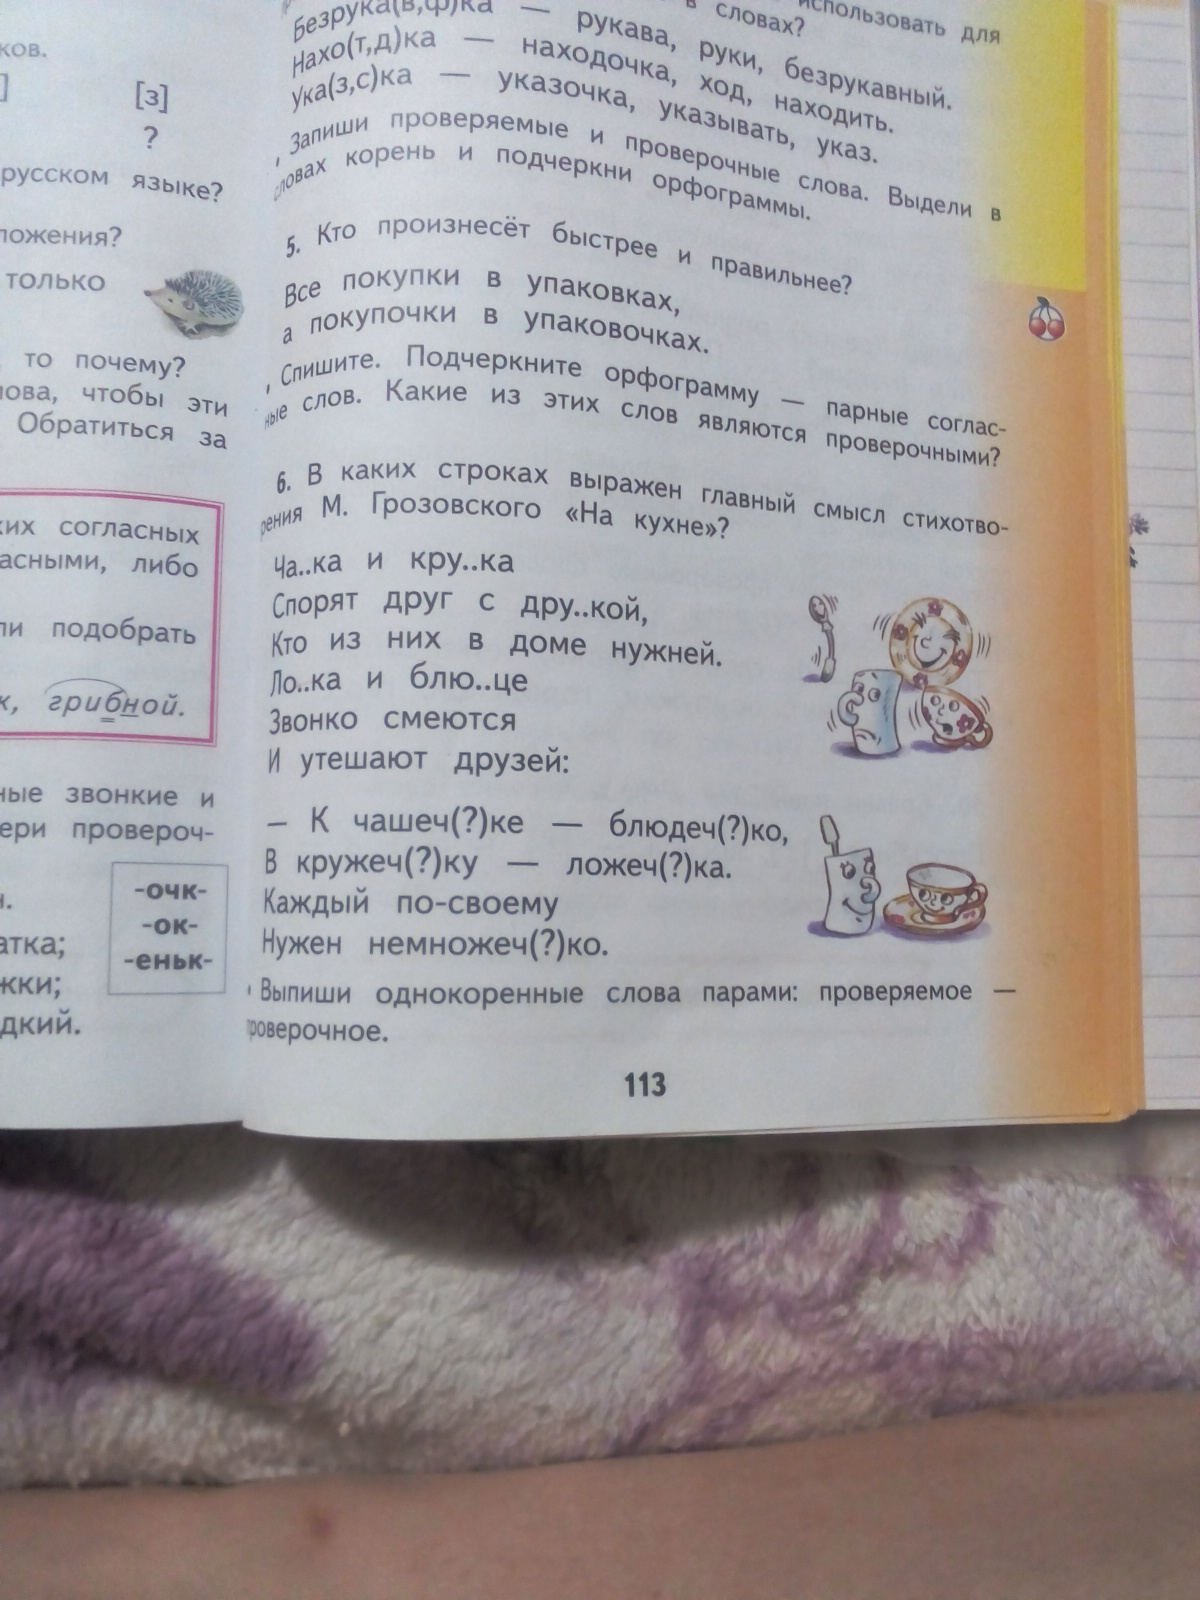 ков.
]
[з]
?
русском языке?
ложения?
только
то почему?
лова, чтобы эти
Обратиться за
ких согласных
асными, либо
ли подобрать
к, грибной.
ные звонкие и
ери провероч-
-очк-
-ок-
-еньк-
н.
атка;
жки;
дкий.
использовать для
в словах?
Безрука(в,ф)ка — рукава, руки, безрукавный.
Нахо(т,д)ка — находочка, ход, находить.
Ука(з,с)ка — указочка, указывать, указ.
Запиши проверяемые и проверочные слова. Выдели в
словах корень и подчеркни орфограммы.
5. Кто произнесёт быстрее и правильнее?
Все покупки в упаковках,
а покупочки в упаковочках.
Спишите. Подчеркните орфограмму — парные соглас-
ные слов. Какие из этих слов являются проверочными?
6. В каких строках выражен главный смысл стихотво-
рения М. Грозовского «На кухне»?
Ча..ка и кру..ка
Спорят друг с дру..кой,
Кто из них в доме нужней.
Ло..ка и блю..це
Звонко смеются
И утешают друзей:
– К чашеч(?)ке — блюдеч(?)ко,
В кружеч(?)ку — ложеч(?)ка.
Каждый по-своему
Нужен немножеч(?)ко.
Выпиши однокоренные слова парами: проверяемое —
проверочное.
113